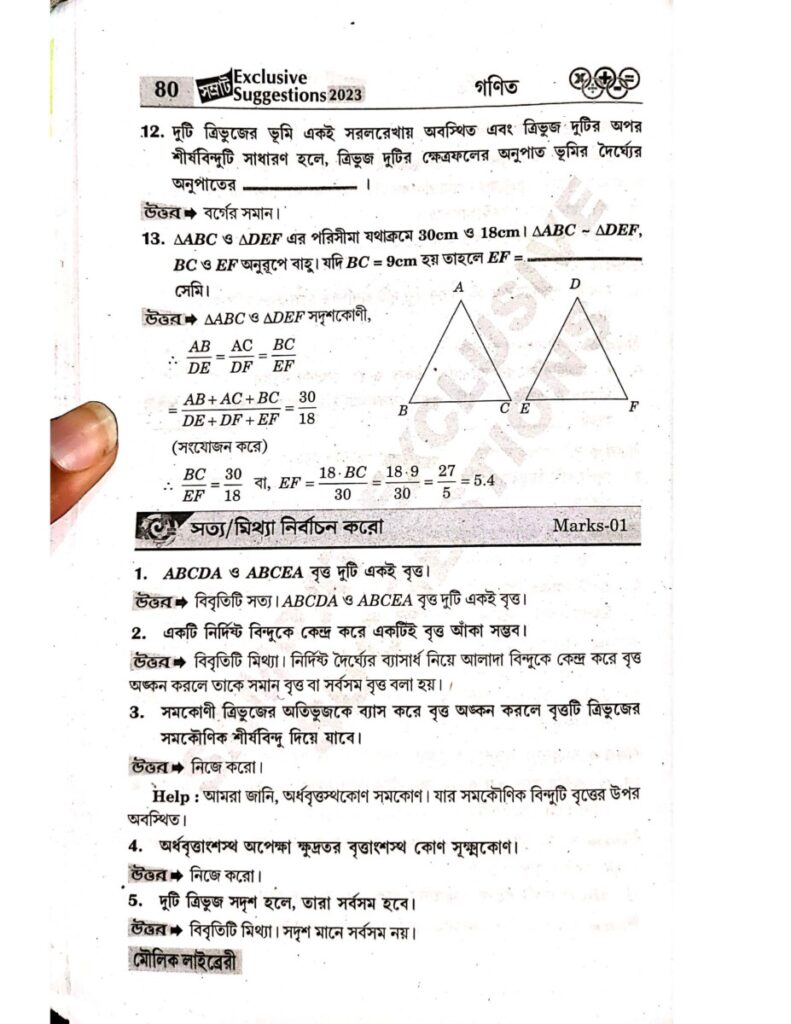 80 সম্রাট Exclusive Suggestions 2023 গণিত
12. দুটি ত্রিভুজের ভূমি একই সরলরেখায় অবস্থিত এবং ত্রিভুজ দুটির অপর
শীর্ষবিন্দুটি সাধারণ হলে, ত্রিভুজ দুটির ক্ষেত্রফলের অনুপাত ভূমির দৈর্ঘ্যের
অনুপাতের ________ ।
উত্তর ➡ বর্গের সমান।
13. ΔABC ও ΔDEF এর পরিসীমা যথাক্রমে 30cm ও 18cm। ΔABC ~ ΔDEF,
BC ও EF অনুরূপে বাহু। যদি BC = 9cm হয় তাহলে EF = ________
সেমি।
উত্তর ➡ ΔABC ও ΔDEF সদৃশকোণী,
∴ AB/DE = AC/DF = BC/EF
= (AB + AC + BC)/(DE + DF + EF) = 30/18
(সংযোজন করে)
∴ BC/EF = 30/18 বা, EF = 18·BC/30 = 18·9/30 = 27/5 = 5.4
A
D
B
C
E
F
সত্য/মিথ্যা নির্বাচন করো Marks-01
1. ABCDA ও ABCEA বৃত্ত দুটি একই বৃত্ত।
উত্তর ➡ বিবৃতিটি সত্য। ABCDA ও ABCEA বৃত্ত দুটি একই বৃত্ত।
2. একটি নির্দিষ্ট বিন্দুকে কেন্দ্র করে একটিই বৃত্ত আঁকা সম্ভব।
উত্তর ➡ বিবৃতিটি মিথ্যা। নির্দিষ্ট দৈর্ঘ্যের ব্যাসার্ধ নিয়ে আলাদা বিন্দুকে কেন্দ্র করে বৃত্ত
অঙ্কন করলে তাকে সমান বৃত্ত বা সর্বসম বৃত্ত বলা হয়।
3. সমকোণী ত্রিভুজের অতিভুজকে ব্যাস করে বৃত্ত অঙ্কন করলে বৃত্তটি ত্রিভুজের
সমকৌণিক শীর্ষবিন্দু দিয়ে যাবে।
উত্তর ➡ নিজে করো।
Help : আমরা জানি, অর্ধবৃত্তস্থকোণ সমকোণ। যার সমকৌণিক বিন্দুটি বৃত্তের উপর
অবস্থিত।
4. অর্ধবৃত্তাংশস্থ অপেক্ষা ক্ষুদ্রতর বৃত্তাংশস্থ কোণ সূক্ষ্মকোণ।
উত্তর ➡ নিজে করো।
5. দুটি ত্রিভুজ সদৃশ হলে, তারা সর্বসম হবে।
উত্তর ➡ বিবৃতিটি মিথ্যা। সদৃশ মানে সর্বসম নয়।
মৌলিক লাইব্রেরী